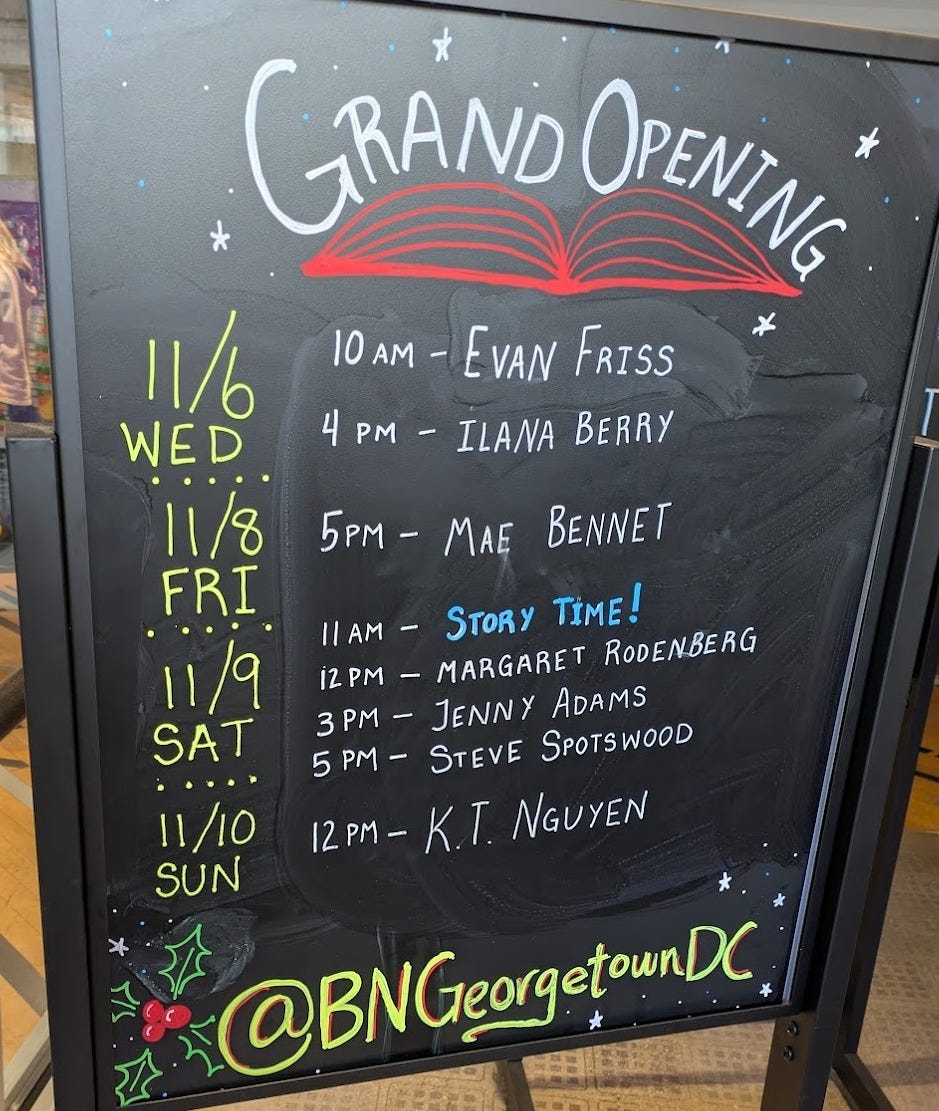 GRAND OPENING
11/6
WED
10 AM – EVAN FRISS
4 PM – ILANA BERRY
11/8
FRI
5PM – MAE BENNET
11/9
SAT
11 AM – STORY TIME!
12 PM – MARGARET RODENBERG
3 PM – JENNY ADAMS
5 PM – STEVE SPOTSWOOD
11/10
SUN
12 PM – K.T. NGUYEN
@BNGeorgetownDC